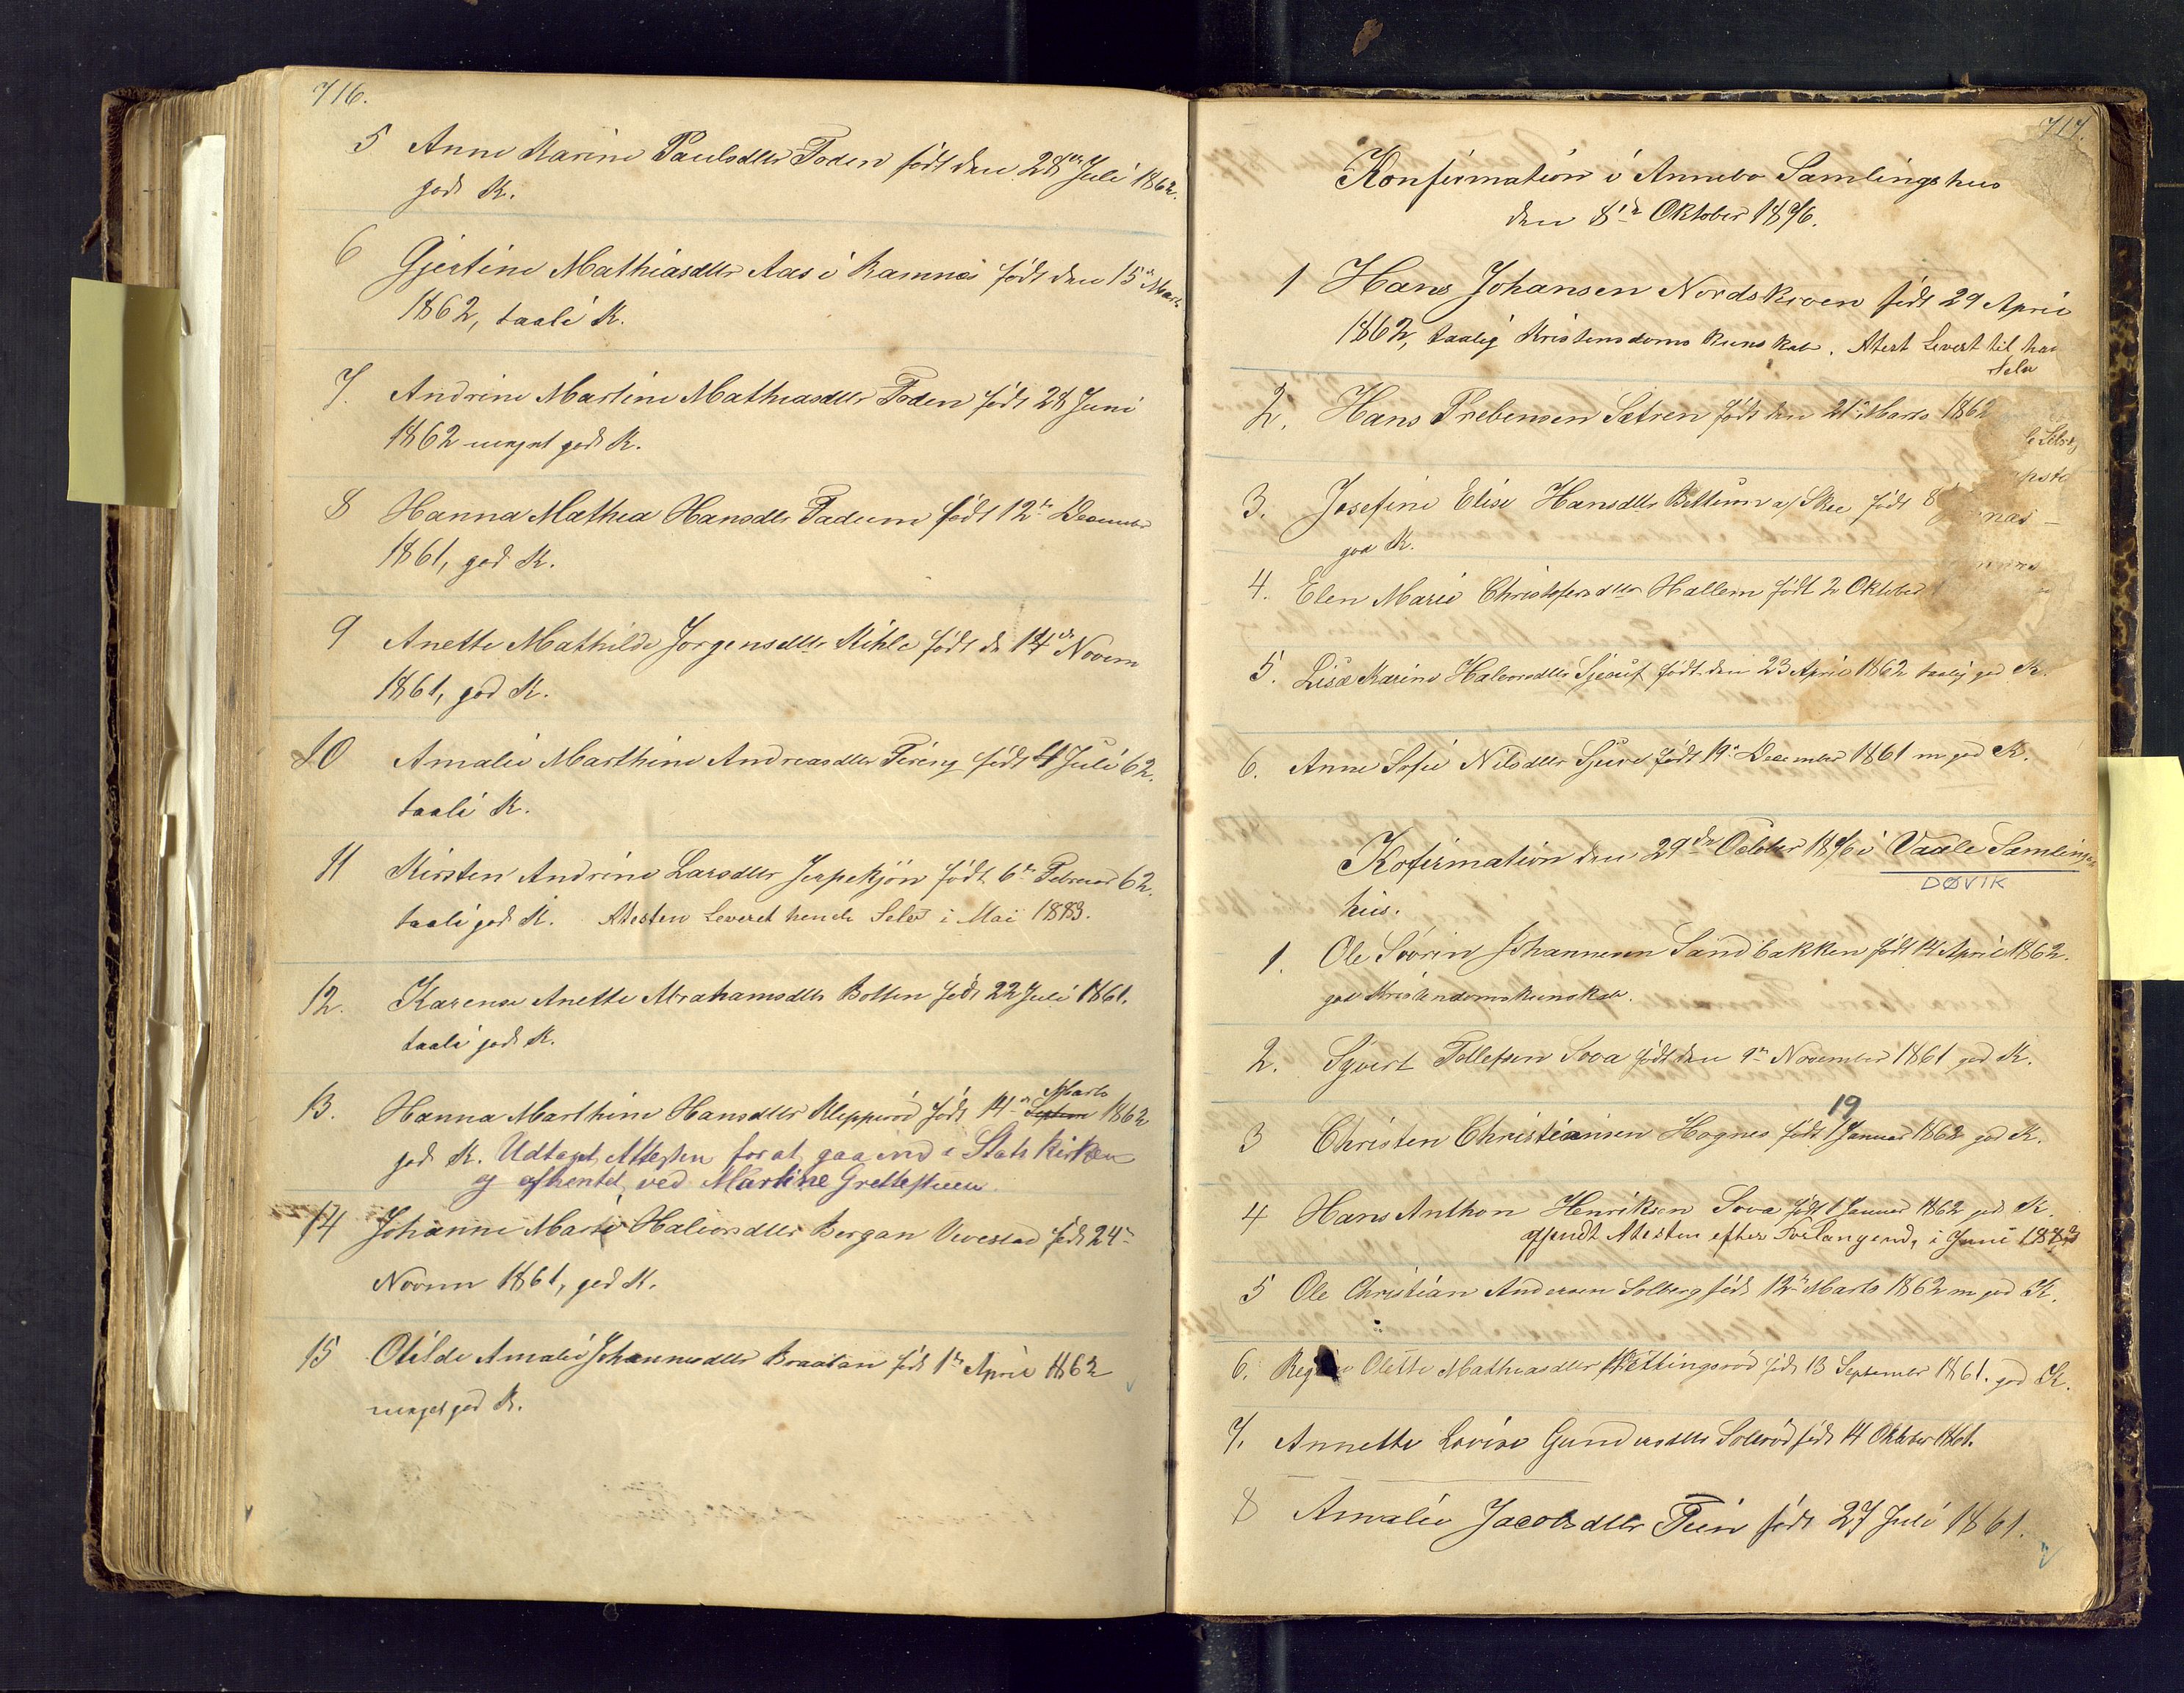 716.
5 Anne Karine Paulsdtr Foden født den 28de Juli 1862.
god K.
6 Gjertine Mathiasdtr Aas i Ramnæs født den 15de Marts
1862, taali K.
7. Andrine Martine Mathiasdtr Foden født 28 Juni
1862 meget god K.
8 Hanna Mathea Hansdtr Fadum født 12te December
1861, god K.
9 Anette Mathilde Jørgensdtr Kihle født d 14de Novem
1861, god K.
10 Amalie Marthine Andreasdtr Firing født 4 Juli 62.
taali K.
11 Kirsten Andrine Larsdtr Jerpekjøn født 6te Februar 62.
taali god K. Atesten Leveret hende Selv i Mai 1883.
12. Karense Anette Abrahamsdtr Bolten født 22 Juli 1861.
taali god K.
13. Hanna Marthine Hansdtr Klepperød født 14de Septem Marts 1862
god K. Udtaget Attesten for at gaa ind i Stats kirken
og afhentet ved Martine Grettestuen
14 Johanne Marie Halvorsdtr Bergan Vivestad født 24de
Novem 1861, god K.
15 Otilde Amalie Johannesdtr Braatan født 1te April 1862
meget god K.
717.
Konfirmation i Annebo Samlingshus
den 8de Oktober 1876.
1 Hans Johansen Nordskoven født 29 April
1862, taalig Kristendoms Kunskab. Atest Levert til ham
selv
2. Hans Prebensen Sætren født den 21de Marts 1862
3. Josefine Elise Hansdtr Bettum af Skee født 8
god K.
4. Elen Marie Christofersdtr Hallem født 2 Oktober
5. Lisæ Karine Halvorsdtr Gjeruf født den 23 April 1862 taalig god K.
6. Anne Sofie Nilsdtr Gjuve født 19de December 1861 m god K.
Kofirmation den 29de October 1876 i Vaale Samlings
DØVIK
hus.
1. Ole Sørin Johannesen Sandbakken født 14 April 1862.
god Kristendomskunskab.
2. Syvert Tollefsen Sova født den 9de November 1861 god K.
19
3 Christen Christiansen Hognes født 1 Januar 1862 god K.
4 Hans Anthon Henriksen Sova født 1 Januar 1862 god K.
afsendt Atesten efter Forlangend, i Juni 1883
5 Ole Christian Andersen Solberg født 12te Marts 1862 m god K.
6. Olette Mathiasdtr Wettingsrød født 13 September 1861. god K.
7. Annette Lovise Gundersdtr Solerød født 14 Oktober 1861.
8 Amalie Jacobsdtr Fein født 27 Juli 1861.